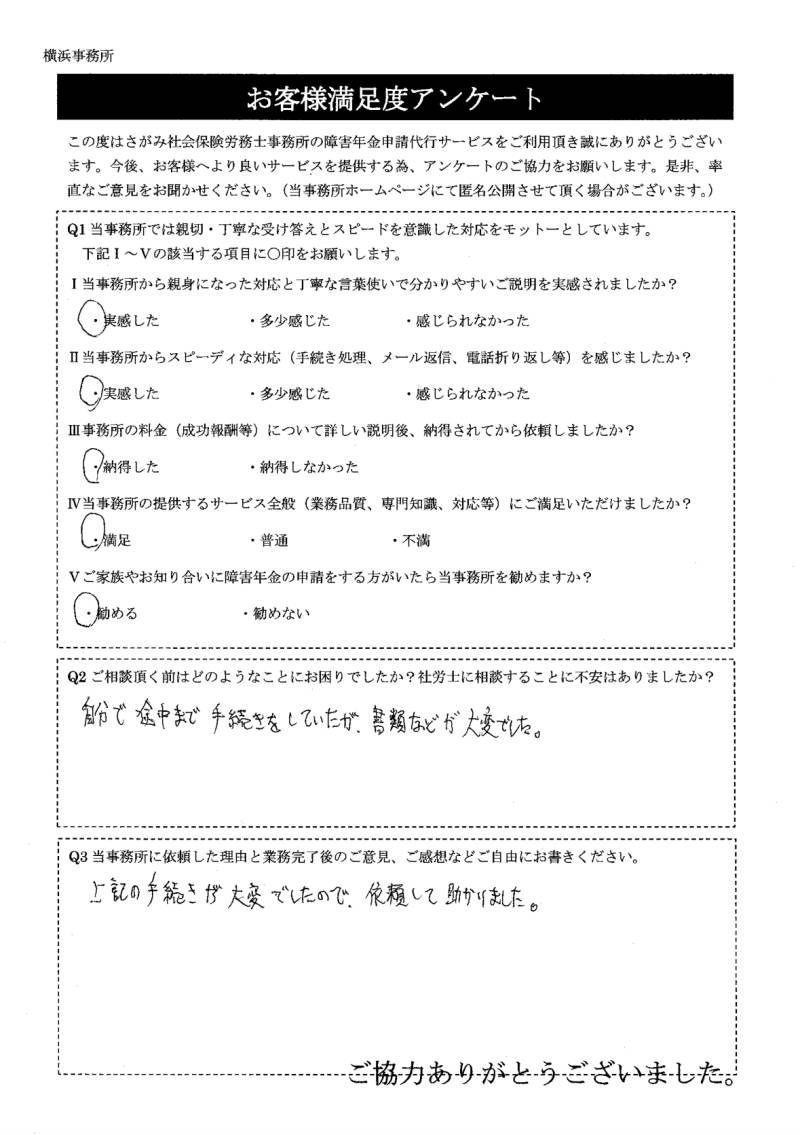 横浜事務所
お客様満足度アンケート
この度はさがみ社会保険労務士事務所の障害年金申請代行サービスをご利用頂き誠にありがとうござい
ます。今後、お客様へより良いサービスを提供する為、アンケートのご協力をお願いします。是非、率
直なご意見をお聞かせください。（当事務所ホームページにて匿名公開させて頂く場合がございます。）
Q1 当事務所では親切・丁寧な受け答えとスピードを意識した対応をモットーとしています。
下記Ⅰ～Ⅴの該当する項目に〇印をお願いします。
Ⅰ当事務所から親身になった対応と丁寧な言葉使いで分かりやすいご説明を実感されましたか？
・実感した ・多少感じた ・感じられなかった
Ⅱ当事務所からスピーディな対応（手続き処理、メール返信、電話折り返し等）を感じましたか？
・実感した ・多少感じた ・感じられなかった
Ⅲ事務所の料金（成功報酬等）について詳しい説明後、納得されてから依頼しましたか？
・納得した ・納得しなかった
Ⅳ当事務所の提供するサービス全般（業務品質、専門知識、対応等）にご満足いただけましたか？
・満足 ・普通 ・不満
Ⅴご家族やお知り合いに障害年金の申請をする方がいたら当事務所を勧めますか？
・勧める ・勧めない
Q2 ご相談頂く前はどのようなことにお困りでしたか？社労士に相談することに不安はありましたか？
自分で途中まで手続きをしていたが、書類などが大変でした。
Q3 当事務所に依頼した理由と業務完了後のご意見、ご感想などご自由にお書きください。
上記の手続きが大変でしたので、依頼して助かりました。
ご協力ありがとうございました。